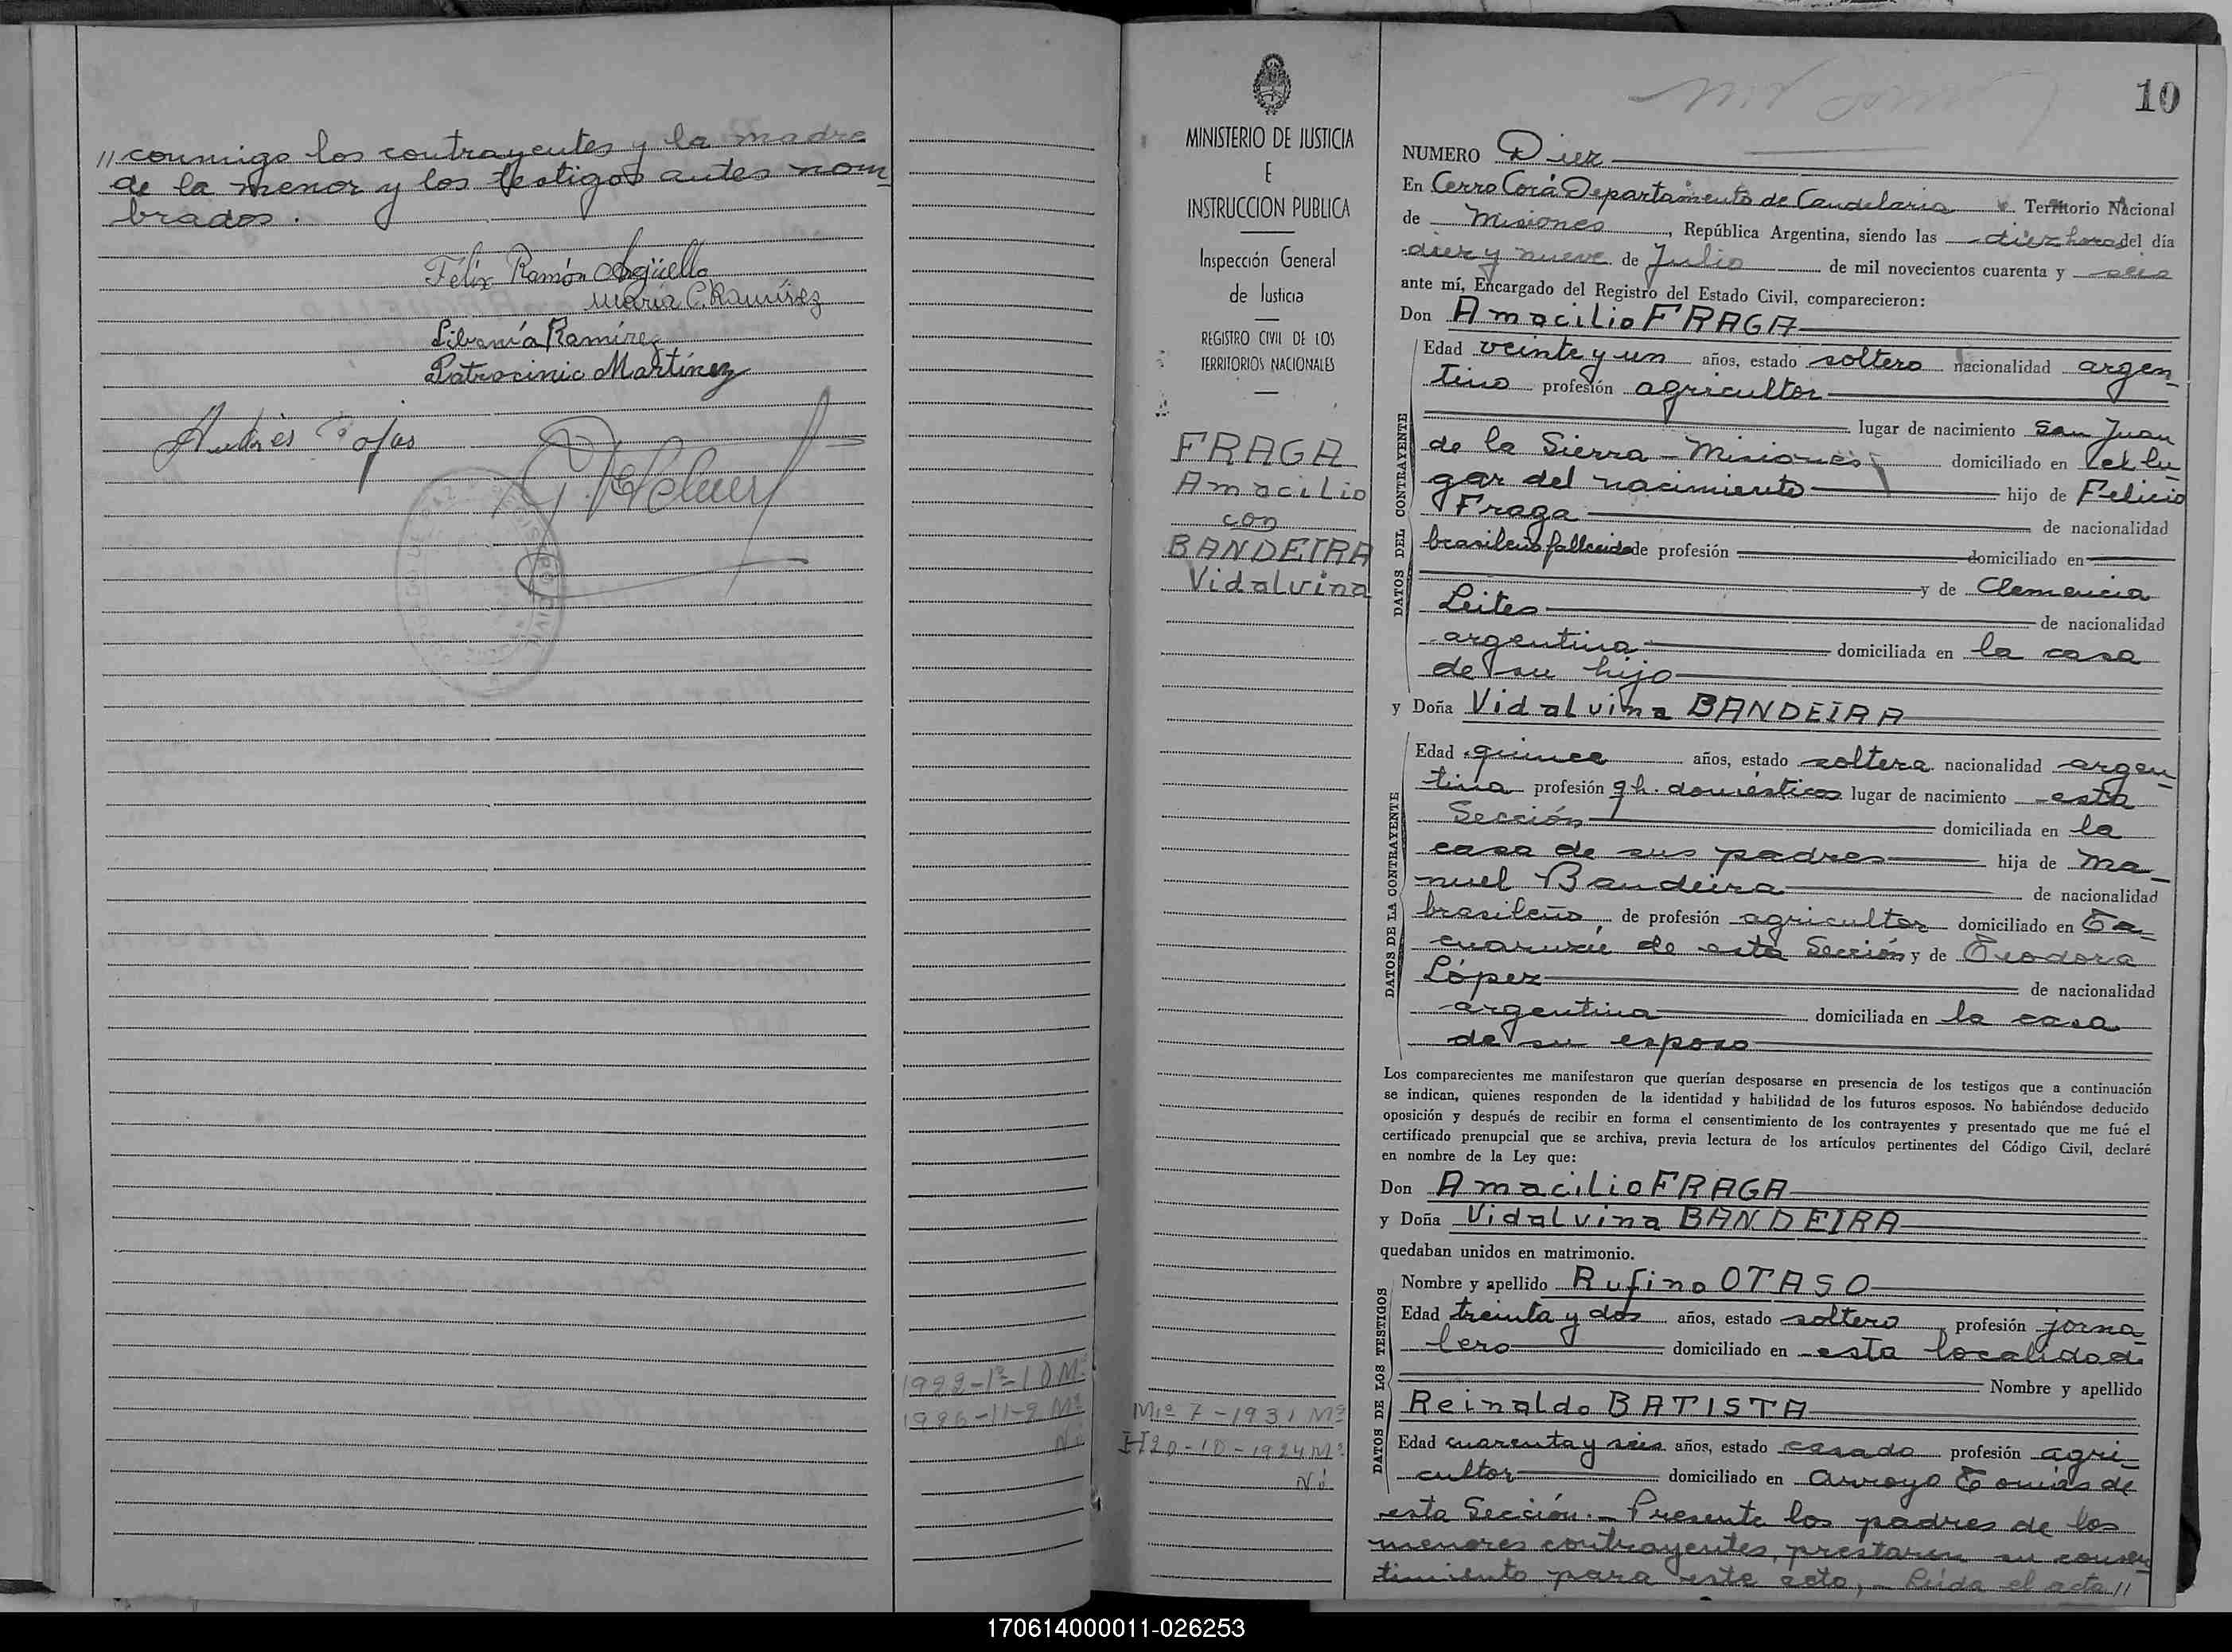 // conmigo los contrayentes y la madre
de la menor y los testigos antes nom-
brados.
Félix Ramón Argüello
María C. Ramírez
Libranía Ramírez
Patrocinio Martínez
Andrés Rojas
1922-12-10 Mª
1926-11-2 Mª
No
MINISTERIO DE JUSTICIA
E
INSTRUCCION PUBLICA
Inspección General
de Justicia
REGISTRO CIVIL DE LOS
TERRITORIOS NACIONALES
FRAGA
Amacilio
con
BANDEIRA
Vidalvina
Mio 7-1931 Mª
H 20-10-1924 Mª
No
10
NUMERO Diez
En Cerro Corá Departamento de Candelaria Territorio Nacional
de Misiones, República Argentina, siendo las diez horas del día
diez y nueve de Julio de mil novecientos cuarenta y seis
ante mí, Encargado del Registro del Estado Civil, comparecieron:
Don Amacilio FRAGA
DATOS DEL CONTRAYENTE
Edad veinte y un años, estado soltero nacionalidad argen-
tino profesión agricultor
lugar de nacimiento San Juan
de la Sierra - Misiones domiciliado en el lu-
gar del nacimiento hijo de Felicio
Fraga de nacionalidad
brasileño fallecido de profesión domiciliado en
y de Clemencia
Leites de nacionalidad
argentina domiciliada en la casa
de su hijo
y Doña Vidalvina BANDEIRA
DATOS DE LA CONTRAYENTE
Edad quince años, estado soltera nacionalidad argen-
tina profesión qh. domésticos lugar de nacimiento esta
Sección domiciliada en la
casa de sus padres hija de Ma-
nuel Bandeira de nacionalidad
brasileño de profesión agricultor domiciliado en Ta-
cuaruzú de esta Sección y de Teodora
López de nacionalidad
argentina domiciliada en la casa
de su esposo
Los comparecientes me manifestaron que querían desposarse en presencia de los testigos que a continuación
se indican, quienes responden de la identidad y habilidad de los futuros esposos. No habiéndose deducido
oposición y después de recibir en forma el consentimiento de los contrayentes y presentado que me fué el
certificado prenupcial que se archiva, previa lectura de los artículos pertinentes del Código Civil, declaré
en nombre de la Ley que:
Don Amacilio FRAGA
y Doña Vidalvina BANDEIRA
quedaban unidos en matrimonio.
DATOS DE LOS TESTIGOS
Nombre y apellido Rufino OTASO
Edad treinta y dos años, estado soltero, profesión jorna-
lero domiciliado en esta localidad.
Nombre y apellido
Reinaldo BATISTA
Edad cuarenta y seis años, estado casado profesión agri-
cultor domiciliado en Arroyo Tomás de
esta Sección. - Presente los padres de los
menores contrayentes, prestaren su consen-
timiento para este acto, - Leída el acta //
170614000011-026253